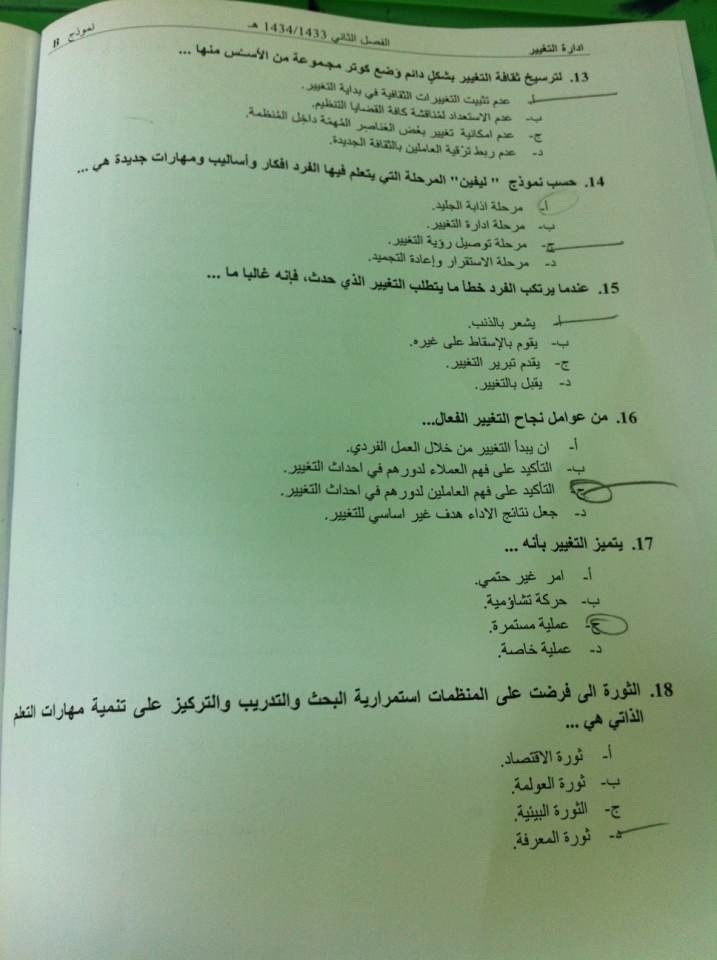 ادارة التغيير
الفصل الثاني 1434/1433 هـ
نموذج B
13. لترسيخ ثقافة التغيير بشكل دائم وضع كوتر مجموعة من الأسس منها ...
أ- عدم تثبيت التغييرات الثقافية في بداية التغيير.
ب- عدم الاستعداد لمناقشة كافة القضايا التنظيم.
ج- عدم امكانية تغيير بعض العناصر المهمة داخل المنظمة.
د- عدم ربط ترقية العاملين بالثقافة الجديدة.
14. حسب نموذج " ليفين" المرحلة التي يتعلم فيها الفرد افكار وأساليب ومهارات جديدة هي ...
أ- مرحلة اذابة الجليد.
ب- مرحلة ادارة التغيير.
ج- مرحلة توصيل رؤية التغيير.
د- مرحلة الاستقرار وإعادة التجميد.
15. عندما يرتكب الفرد خطأ ما يتطلب التغيير الذي حدث، فإنه غالبا ما ...
أ- يشعر بالذنب.
ب- يقوم بالإسقاط على غيره.
ج- يقدم تبرير التغيير.
د- يقبل بالتغيير.
16. من عوامل نجاح التغيير الفعال...
أ- ان يبدأ التغيير من خلال العمل الفردي.
ب- التأكيد على فهم العملاء لدورهم في احداث التغيير.
ج- التأكيد على فهم العاملين لدورهم في احداث التغيير.
د- جعل نتائج الاداء هدف غير اساسي للتغيير.
17. يتميز التغيير بأنه ...
أ- امر غير حتمي.
ب- حركة تشاؤمية.
ج- عملية مستمرة.
د- عملية خاصة.
18. الثورة الى فرضت على المنظمات استمرارية البحث والتدريب والتركيز على تنمية مهارات التعلم
الذاتي هي ...
أ- ثورة الاقتصاد.
ب- ثورة العولمة.
ج- الثورة البيئية.
د- ثورة المعرفة.